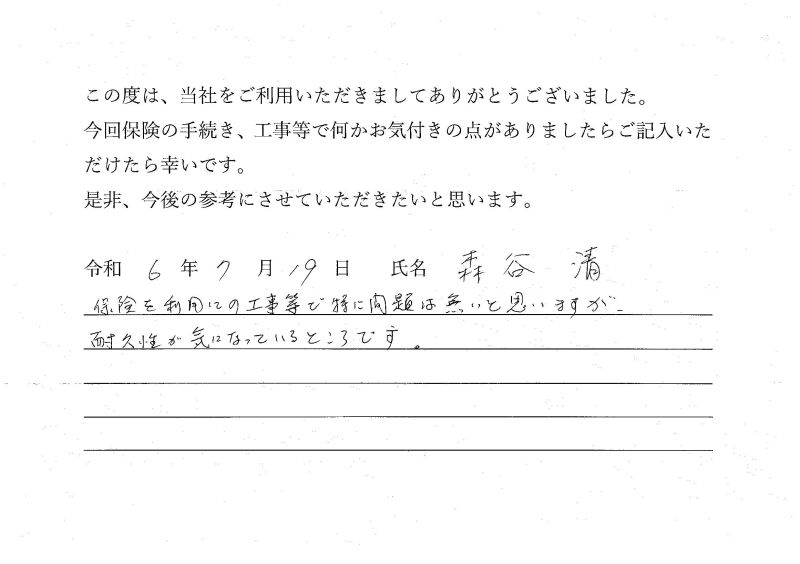 この度は、当社をご利用いただきましてありがとうございました。
今回保険の手続き、工事等で何かお気付きの点がありましたらご記入いた
だけたら幸いです。
是非、今後の参考にさせていただきたいと思います。
令和 6 年 7 月 19 日 氏名 森谷 清
保険を利用しての工事等で特に問題は無いと思いますが、
耐久性が気になっているところです。